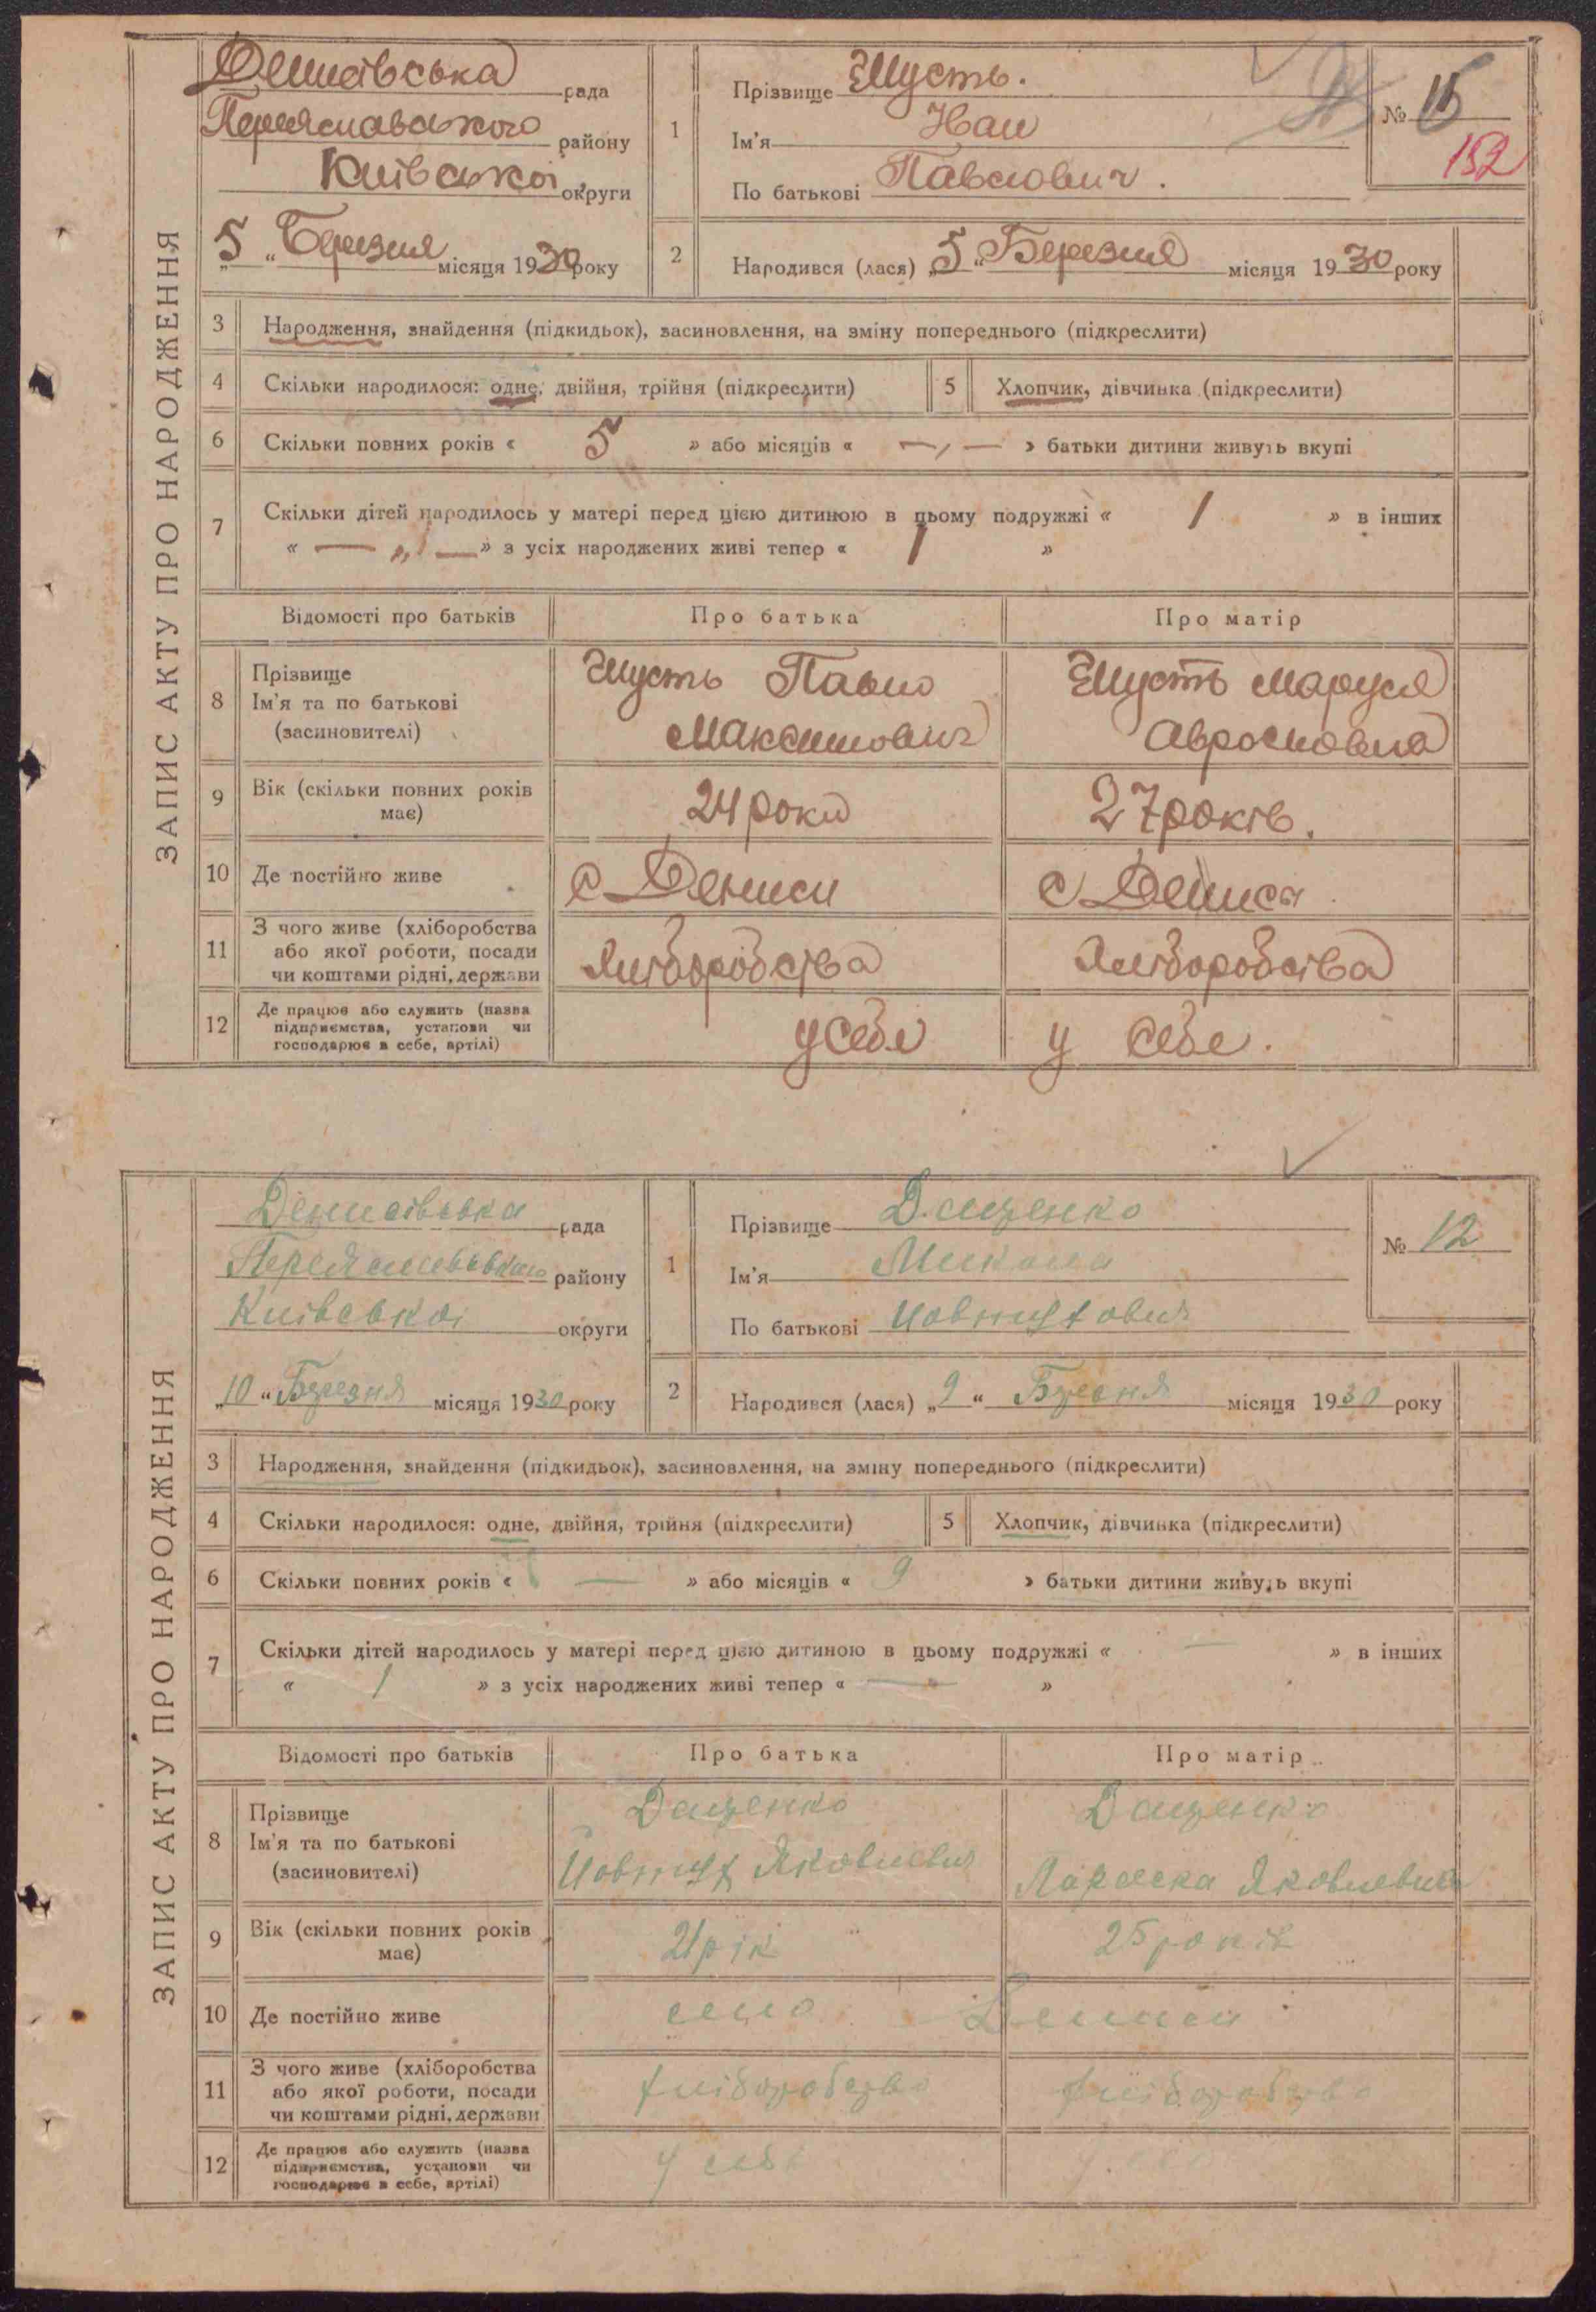 ЗАПИС АКТУ ПРО НАРОДЖЕННЯ
Денисівська рада
Переяславського району
Київської округи
„5“ Березня місяця 1930 року
1
Прізвище Шусть.
Ім'я Іван
По батькові Павлович.
№ 11
152
2
Народився (лася) „5“ Березня місяця 1930 року
3 Народження, знайдення (підкидьок), засиновлення, на зміну попереднього (підкреслити)
4 Скільки народилося: одне, двійня, трійня (підкреслити)
5 Хлопчик, дівчинка (підкреслити)
6 Скільки повних років « 5 » або місяців « —„— » батьки дитини живуть вкупі
7 Скільки дітей народилось у матері перед цією дитиною в цьому подружжі « 1 » в інших
« —„— » з усіх народжених живі тепер « 1 »
Відомості про батьків Про батька Про матір
8 Прізвище
Ім'я та по батькові
(засиновителі)
Шусть Павло
Максимович
Шусть Маруся
9 Вік (скільки повних років
має)
24 роки
27 років.
10 Де постійно живе
с Дениси
с Дениси
11 З чого живе (хліборобства
або якої роботи, посади
чи коштами рідні, держави
Хліборобства
Хліборобства
12 Де працює або служить (назва
підприємства, установи чи
господарює в себе, артілі)
у себе
у себе.
ЗАПИС АКТУ ПРО НАРОДЖЕННЯ
Денисівська рада
Переяславського району
Київської округи
„10“ Березня місяця 1930 року
1
Прізвище Даценко
Ім'я Микола
По батькові Йовтухович
№ 12
2
Народився (лася) „9“ Березня місяця 1930 року
3 Народження, знайдення (підкидьок), засиновлення, на зміну попереднього (підкреслити)
4 Скільки народилося: одне, двійня, трійня (підкреслити)
5 Хлопчик, дівчинка (підкреслити)
6 Скільки повних років « — » або місяців « 9 » батьки дитини живуть вкупі
7 Скільки дітей народилось у матері перед цією дитиною в цьому подружжі « — » в інших
« 1 » з усіх народжених живі тепер « — »
Відомості про батьків Про батька Про матір
8 Прізвище
Ім'я та по батькові
(засиновителі)
Даценко
Йовтух Яковлевич
Даценко
Параска Яковлевна
9 Вік (скільки повних років
має)
21 рік
25 років
10 Де постійно живе
село Дениси
11 З чого живе (хліборобства
або якої роботи, посади
чи коштами рідні, держави
хліборобство
хліборобство
12 Де працює або служить (назва
підприємства, установи чи
господарює в себе, артілі)
у себе